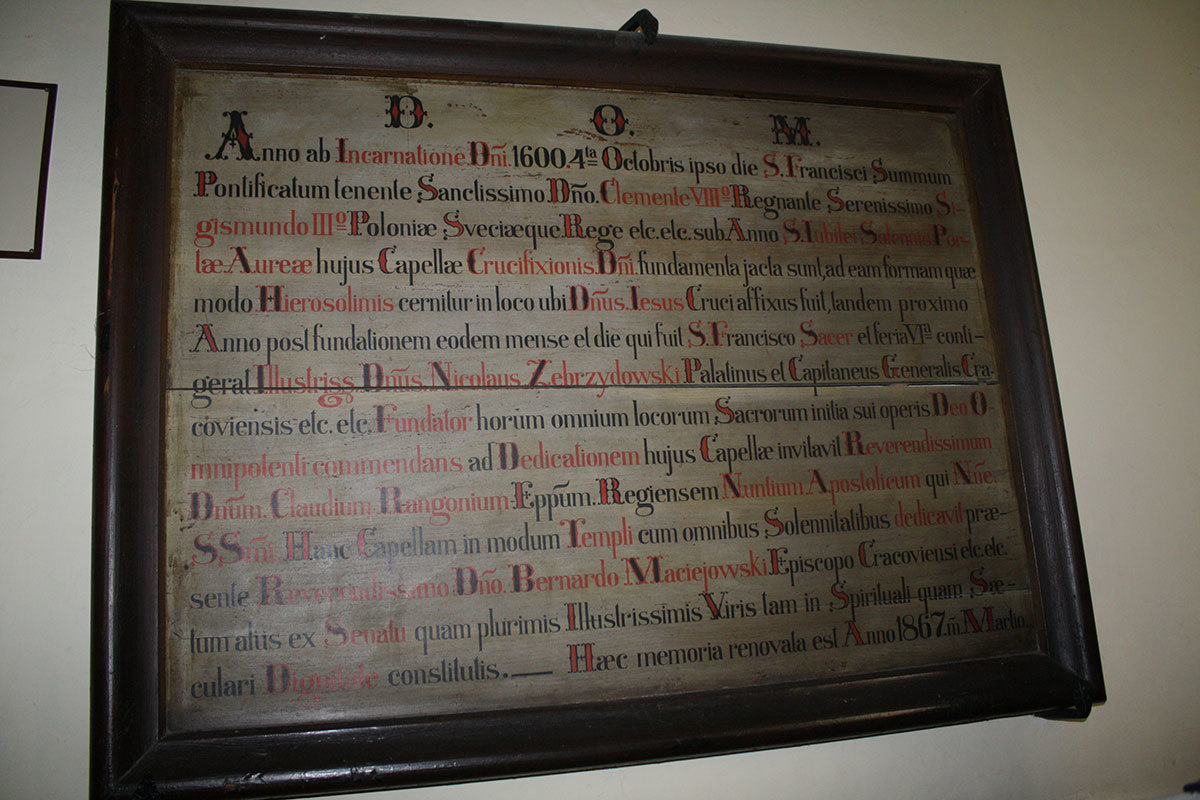 D. O. M.
Anno ab Incarnatione Dñi. 1600. 4ta Octobris ipso die S. Francisci Summum
Pontificatum tenente Sanctissimo Dño. Clemente VIIIº Regnante Serenissimo Si-
gismundo IIIº Poloniæ Sveciæque Rege etc. etc. sub Anno S. Iubilei Solennis Por-
tæ Aureæ hujus Capellæ Crucifixionis Dñi. fundamenta jacta sunt, ad eam formam quæ
modo Hierosolimis cernitur in loco ubi Dñus. Iesus Cruci affixus fuit, tandem proximo
Anno post fundationem eodem mense et die qui fuit S. Francisco Sacer et feria VIª conti-
gerat Illustriss. Dñus. Nicolaus Zebrzydowski Palatinus et Capitaneus Generalis Cra-
coviensis etc. etc. Fundator horum omnium locorum Sacrorum initia sui operis Deo O-
mnipotenti commendans ad Dedicationem hujus Capellæ invitavit Reverendissimum
Dñum. Claudium Rangonium Eppũm. Regiensem Nuntium Apostolicum qui Nñe.
SSmi Hanc Capellam in modum Templi cum omnibus Solennitatibus dedicavit præ-
sente Reverendissimo Dño. Bernardo Maciejowski Episcopo Cracoviensi etc. etc.
tum aliis ex Senatu quam plurimis Illustrissimis Viris tam in Spirituali quam Sæ-
culari Dignitate constitutis.— Hæc memoria renovata est Anno 1867. m̃. Martio.